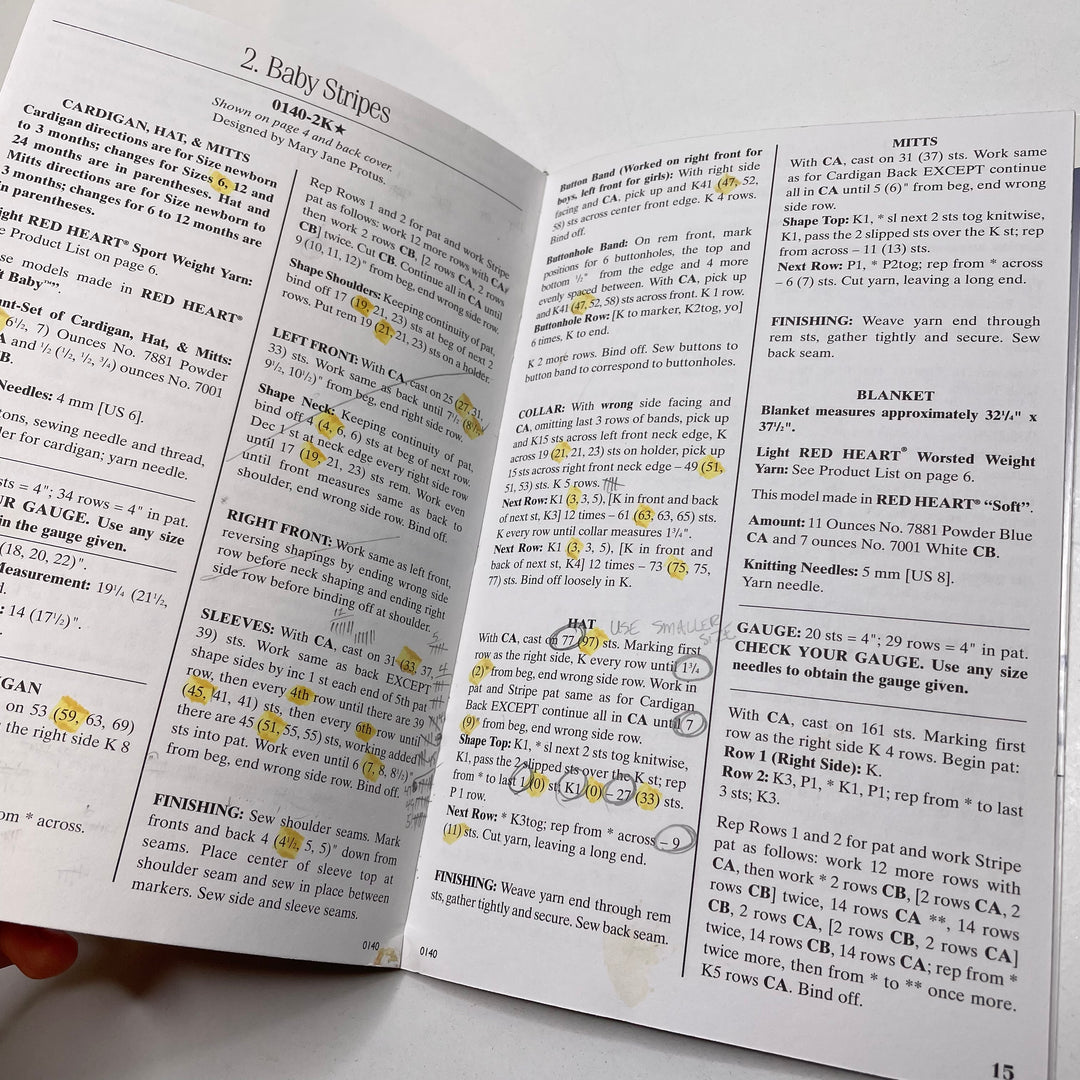 2. Baby Stripes
0140-2K★
Shown on page 4 and back cover.
Designed by Mary Jane Protus.
CARDIGAN, HAT, & MITTS
Cardigan directions are for Size newborn
to 3 months; changes for Sizes 6, 12 and
24 months are in parentheses. Hat and
Mitts directions are for Size newborn to
3 months; changes for 6 to 12 months are
in parentheses.
RED HEART® Sport Weight Yarn:
Product List on page 6.
models made in RED HEART®
Baby™".
Set of Cardigan, Hat, & Mitts:
6½, 7) Ounces No. 7881 Powder
and ½ (½, ½, ¾) ounces No. 7001
Needles: 4 mm [US 6].
sewing needle and thread,
for cardigan; yarn needle.
sts = 4"; 34 rows = 4" in pat.
GAUGE. Use any size
in the gauge given.
(18, 20, 22)".
Measurement: 19¼ (21½,
14 (17½)".
on 53 (59, 63, 69)
the right side K 8
* across.
Rep Rows 1 and 2 for pat and work Stripe
pat as follows: work 12 more rows with CA,
then work 2 rows CB, [2 rows CA, 2 rows
CB] twice. Cut CB. Continue all in CA until
9 (10, 11, 12)" from beg, end wrong side row.
Shape Shoulders: Keeping continuity of pat,
bind off 17 (19, 21, 23) sts at beg of next 2
rows. Put rem 19 (21, 21, 23) sts on a holder.
LEFT FRONT: With CA, cast on 25 (27, 31,
33) sts. Work same as back until 7½ (8½,
9½, 10½)" from beg, end right side row.
Shape Neck: Keeping continuity of pat,
bind off 4 (4, 6, 6) sts at beg of next row.
Dec 1 st at neck edge every right side row
until 17 (19, 21, 23) sts rem. Work even
until front measures same as back to
shoulder, end wrong side row. Bind off.
RIGHT FRONT: Work same as left front,
reversing shapings by ending wrong side
row before neck shaping and ending right
side row before binding off at shoulder.
SLEEVES: With CA, cast on 31 (33, 37,
39) sts. Work same as back EXCEPT
shape sides by inc 1 st each end of 5th pat
row, then every 4th row until there are 39
(45, 41, 41) sts, then every 6th row until
there are 45 (51, 55, 55) sts, working added
sts into pat. Work even until 6 (7, 8, 8½)"
from beg, end wrong side row. Bind off.
FINISHING: Sew shoulder seams. Mark
fronts and back 4 (4½, 5, 5)" down from
seams. Place center of sleeve top at
shoulder seam and sew in place between
markers. Sew side and sleeve seams.
0140
Button Band (Worked on right front for
boys, left front for girls): With right side
facing and CA, pick up and K41 (47, 52,
58) sts across center front edge. K 4 rows.
Bind off.
Buttonhole Band: On rem front, mark
positions for 6 buttonholes, the top and
bottom ½" from the edge and 4 more
evenly spaced between. With CA, pick up
and K41 (47, 52, 58) sts across front. K 1 row.
Buttonhole Row: [K to marker, K2tog, yo]
6 times, K to end.
K 2 more rows. Bind off. Sew buttons to
button band to correspond to buttonholes.
COLLAR: With wrong side facing and
CA, omitting last 3 rows of bands, pick up
and K15 sts across left front neck edge, K
across 19 (21, 21, 23) sts on holder, pick up
15 sts across right front neck edge – 49 (51,
51, 53) sts. K 5 rows.
Next Row: K1 (3, 3, 5), [K in front and back
of next st, K3] 12 times – 61 (63, 63, 65) sts.
K every row until collar measures 1¾".
Next Row: K1 (3, 3, 5), [K in front and
back of next st, K4] 12 times – 73 (75, 75,
77) sts. Bind off loosely in K.
HAT USE SMALLER SIZE
With CA, cast on 77 (97) sts. Marking first
row as the right side, K every row until 1¾
(2)" from beg, end wrong side row. Work in
pat and Stripe pat same as for Cardigan
Back EXCEPT continue all in CA until 7
(9)" from beg, end wrong side row.
Shape Top: K1, * sl next 2 sts tog knitwise,
K1, pass the 2 slipped sts over the K st; rep
from * to last 1 (0) st; K1 (0) – 27 (33) sts.
P 1 row.
Next Row: * K3tog; rep from * across – 9
(11) sts. Cut yarn, leaving a long end.
FINISHING: Weave yarn end through rem
sts, gather tightly and secure. Sew back seam.
0140
MITTS
With CA, cast on 31 (37) sts. Work same
as for Cardigan Back EXCEPT continue
all in CA until 5 (6)" from beg, end wrong
side row.
Shape Top: K1, * sl next 2 sts tog knitwise,
K1, pass the 2 slipped sts over the K st; rep
from across – 11 (13) sts.
Next Row: P1, * P2tog; rep from * across
– 6 (7) sts. Cut yarn, leaving a long end.
FINISHING: Weave yarn end through
rem sts, gather tightly and secure. Sew
back seam.
BLANKET
Blanket measures approximately 32¼" x
37½".
Light RED HEART® Worsted Weight
Yarn: See Product List on page 6.
This model made in RED HEART® “Soft”.
Amount: 11 Ounces No. 7881 Powder Blue
CA and 7 ounces No. 7001 White CB.
Knitting Needles: 5 mm [US 8].
Yarn needle.
GAUGE: 20 sts = 4"; 29 rows = 4" in pat.
CHECK YOUR GAUGE. Use any size
needles to obtain the gauge given.
With CA, cast on 161 sts. Marking first
row as the right side K 4 rows. Begin pat:
Row 1 (Right Side): K.
Row 2: K3, P1, * K1, P1; rep from * to last
3 sts; K3.
Rep Rows 1 and 2 for pat and work Stripe
pat as follows: work 12 more rows with
CA, then work * 2 rows CB, [2 rows CA, 2
rows CB] twice, 14 rows CA **, 14 rows
CB, 2 rows CA, [2 rows CB, 2 rows CA]
twice, 14 rows CB, 14 rows CA; rep from *
twice more, then from * to ** once more.
K5 rows CA. Bind off.
15